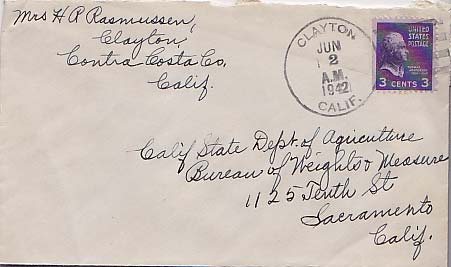 Mrs H P Rasmussen,
Clayton,
Contra Costa Co,
Calif.
CLAYTON
JUN
2
A.M.
1942
CALIF.
UNITED
STATES
POSTAGE
3 CENTS 3
Calif State Dept. of Agriculture
Bureau of Weights & Measure
1125 Tenth St
Sacramento
Calif.